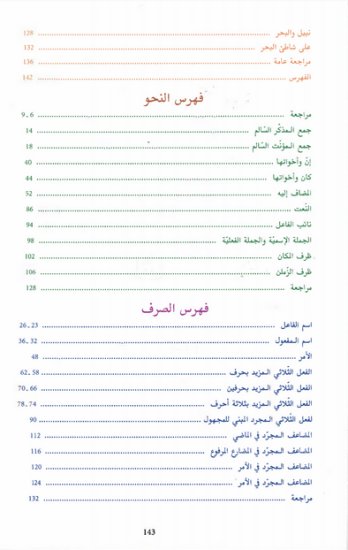 نبيل والبحر 128
على شاطئ البحر 132
مراجعة عامة 136
الفهرس 142
فهرس النحو
مراجعة 6 ـ 9
جمع المذكّر السّالم 14
جمع المؤنّث السّالم 18
إنّ وأخواتها 40
كان وأخواتها 44
المضاف إليه 52
النّعت 86
نائب الفاعل 94
الجملة الإسميّة والجملة الفعليّة 98
ظرف المكان 102
ظرف الزّمان 106
مراجعة 128
فهرس الصرف
اسم الفاعل 23 ,26
اسم المفعول 32 ,36
الأمر 48
الفعل الثّلاثي المزيد بحرف 58 ,62
الفعل الثّلاثي المزيد بحرفين 66 ,70
الفعل الثّلاثي المزيد بثلاثة أحرف 74 ,78
لفعل الثّلاثي المجرد المبني للمجهول 90
المضاعف المجرّد في الماضي 112
المضاعف المجرّد في المضارع المرفوع 116
المضاعف المجرّد في الأمر 120
المضاعف المجرّد في الأمر 124
مراجعة 132
143